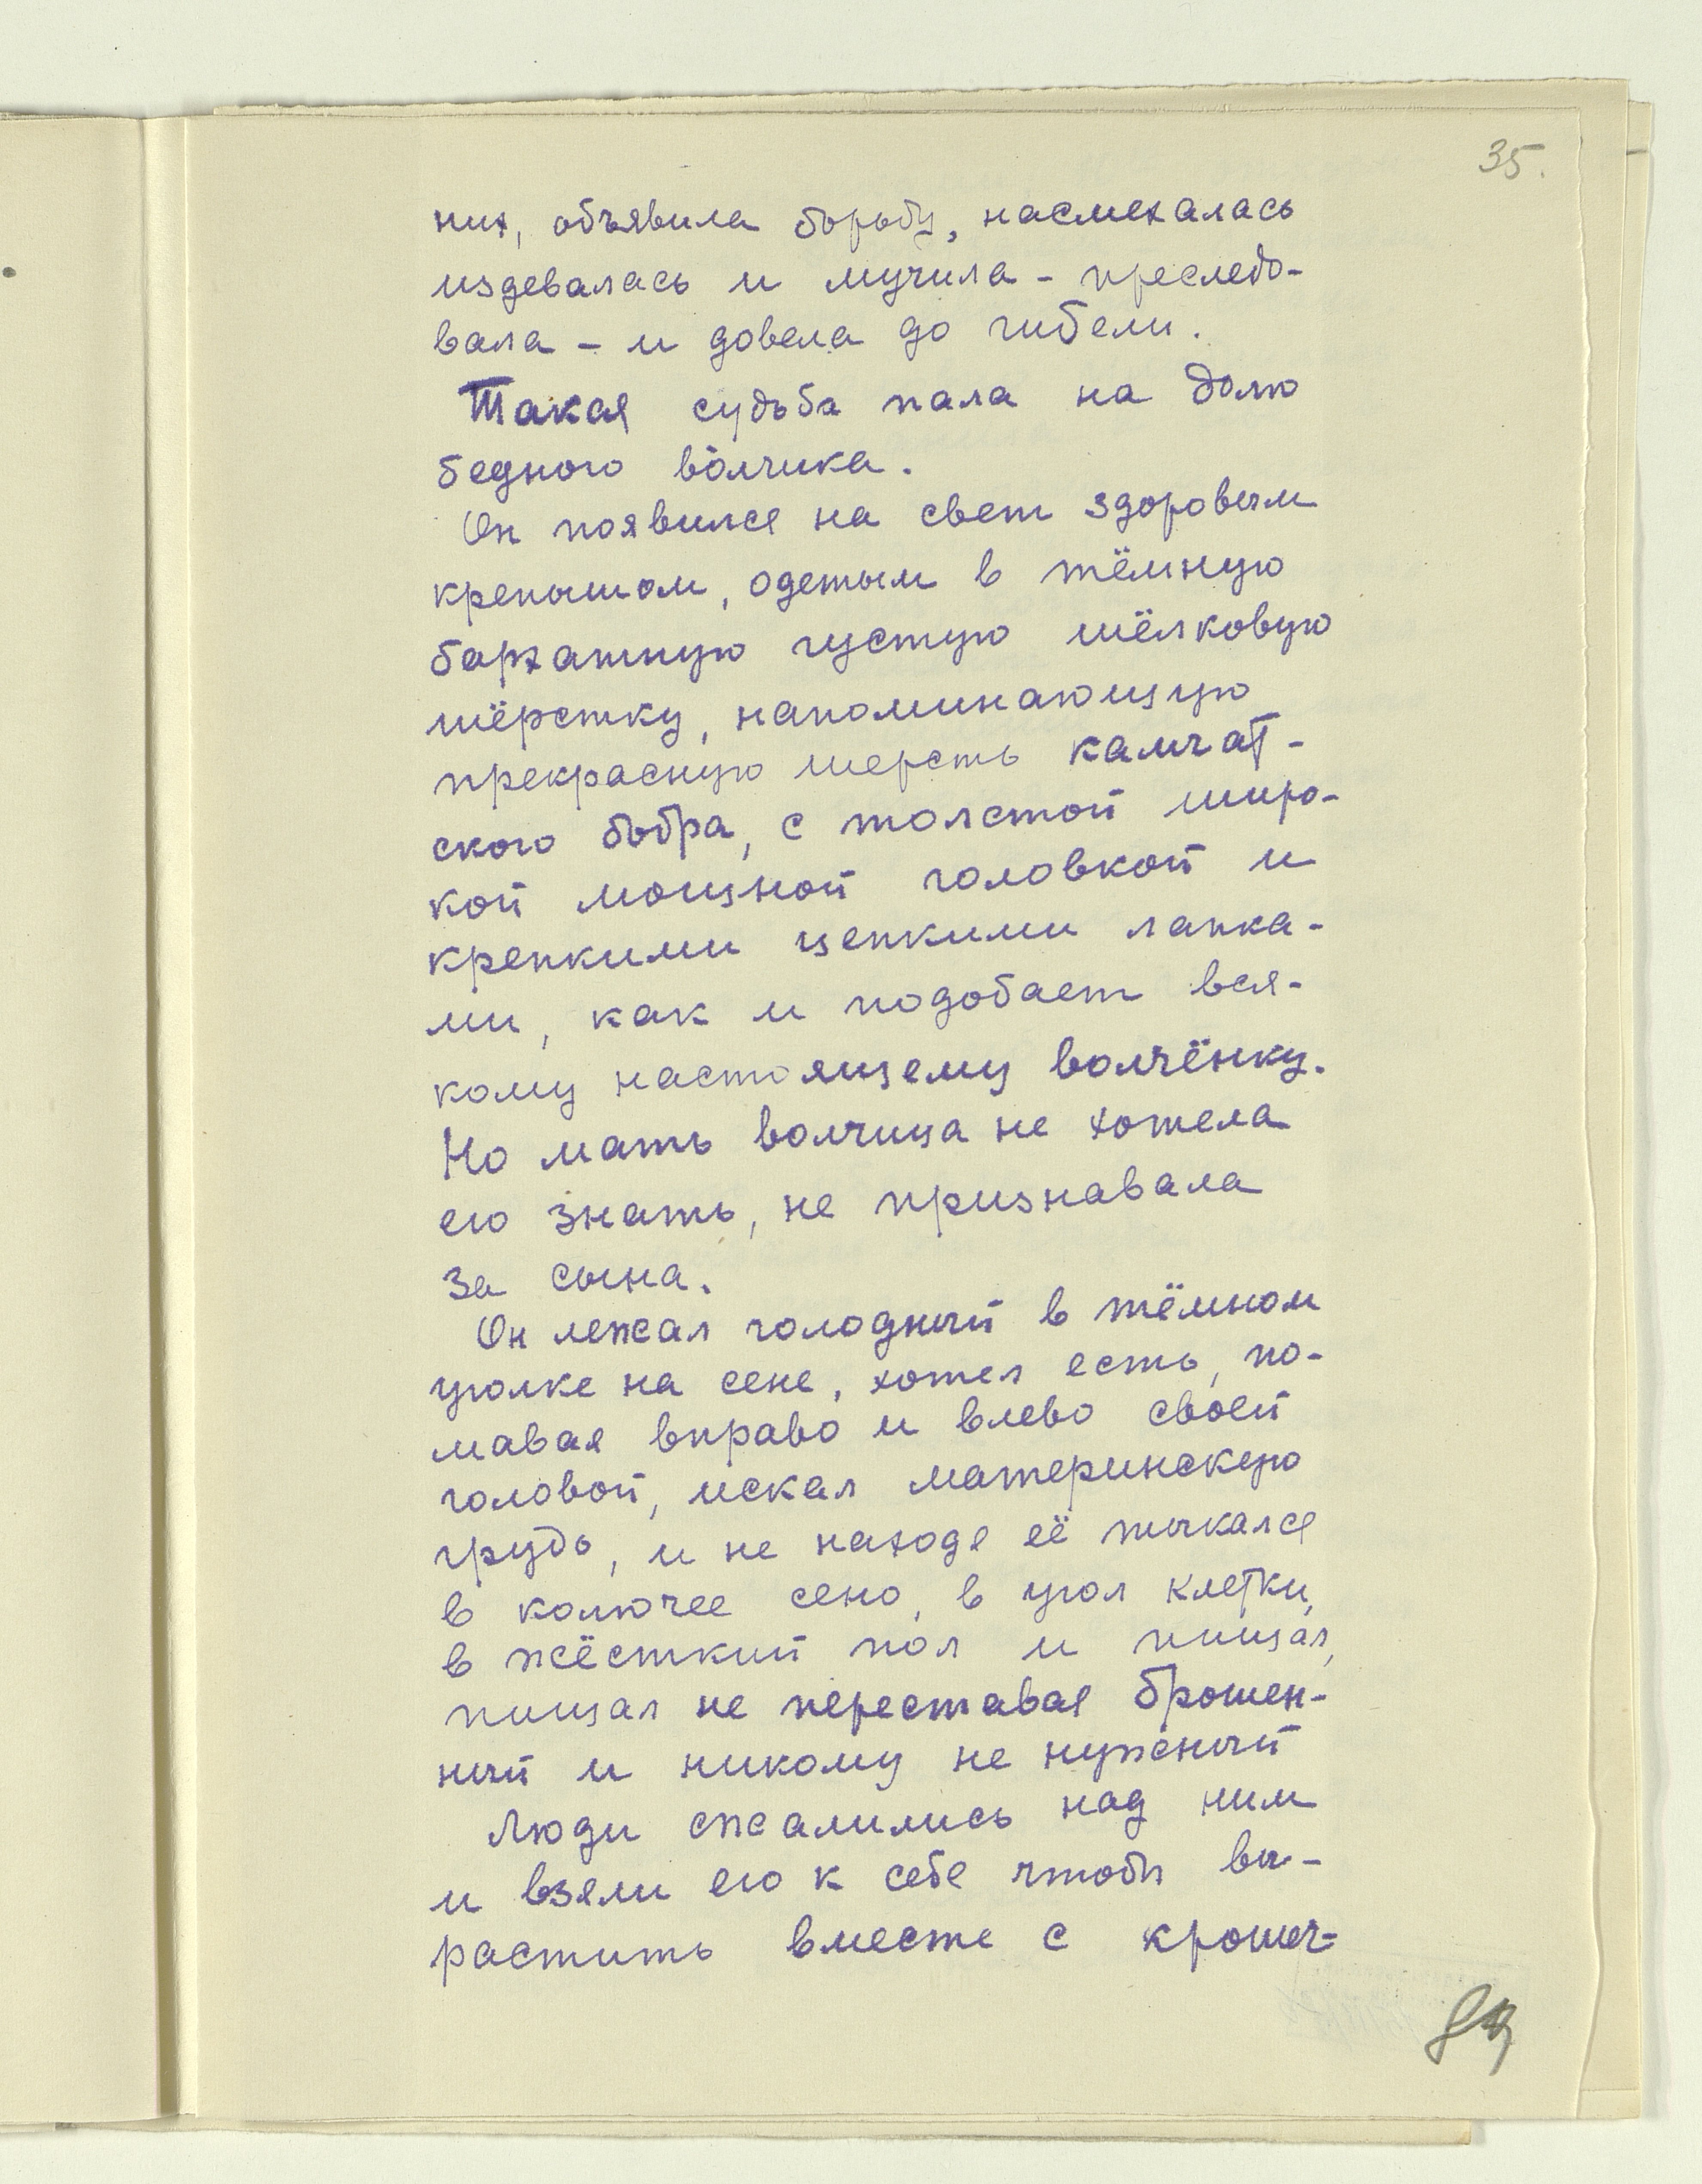 35.
них, объявила борьбу, насмехалась
издевалась и мучила - преследо-
вала - и довела до гибели.
Такая судьба пала на долю
бедного волчика.
Он появился на свет здоровым
крепышом, одетым в тёмную
бархатную густую шёлковую
шёрстку, напоминающую
прекрасную шерсть камчат-
ского бобра, с толстой широ-
кой мощной головкой и
крепкими цепкими лапка-
ми, как и подобает вся-
кому настоящему волчёнку.
Но мать волчица не хотела
его знать, не признавала
за сына.
Он лежал голодный в тёмном
уголке на сене, хотел есть, по-
мавая вправо и влево своей
головой, искал материнскую
грудь, и не находя её тыкался
в колючее сено, в угол клетки,
в жёсткий пол и пищал,
пищал не переставая брошен-
ный и никому не нужный
Люди сжалились над ним
и взяли его к себе чтобы вы-
растить вместе с крошеч-